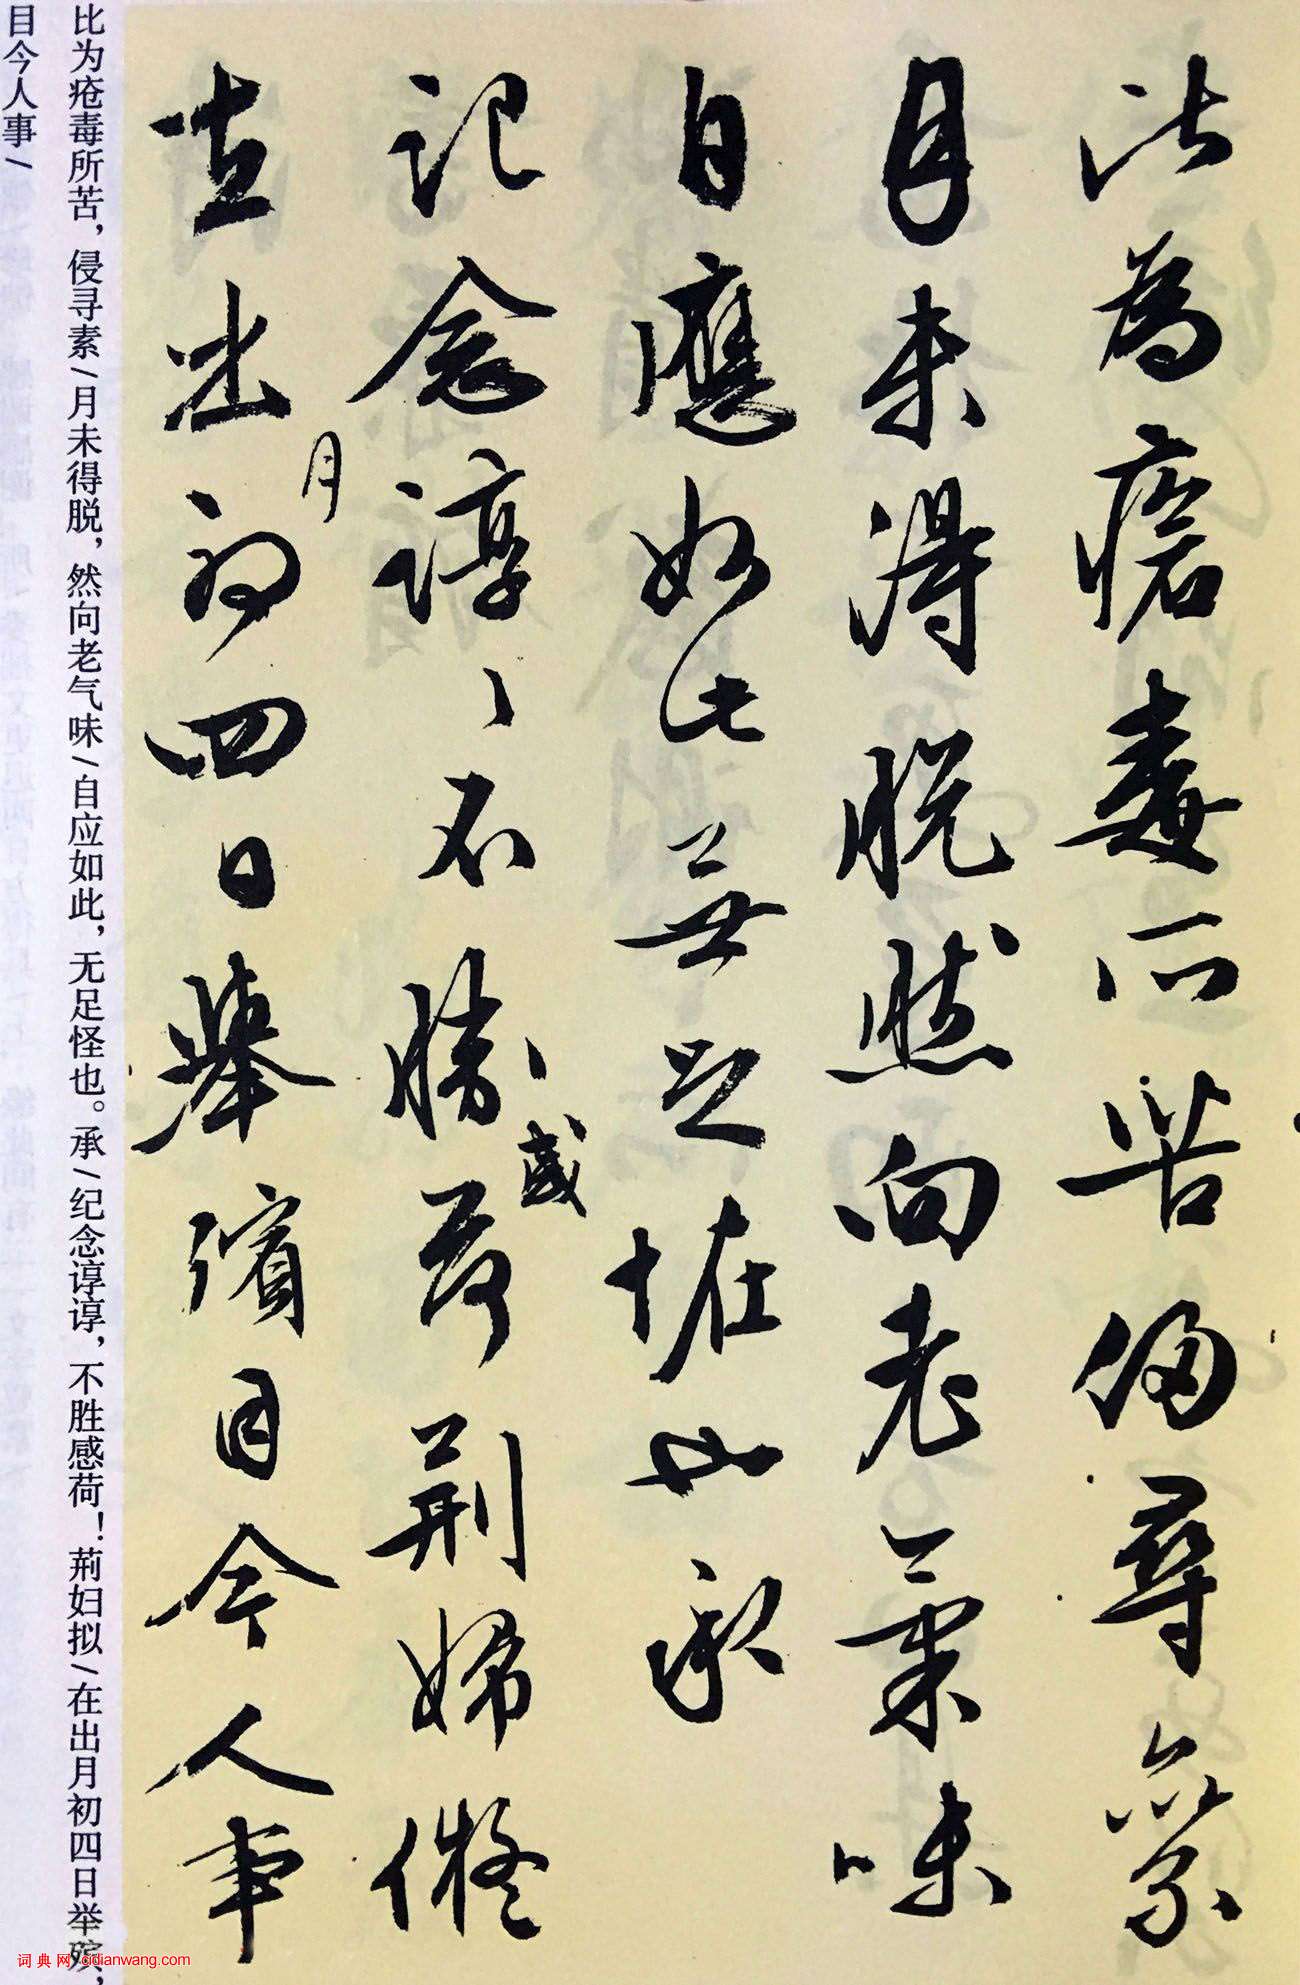 比为疮毒所苦，侵寻素/月未得脱，然向老气味/自应如此，无足怪也。承/纪念谆谆，不胜感荷！荆妇拟/在出月初四日举殡，
目今人事/
比為瘡毒所苦侵尋累
月未得脱然向老氣味
自應如此無足怪也承
記念諄〻不勝感荷荆婦儗
在出月初四日舉殯目今人事
词典网 cidianwang.com